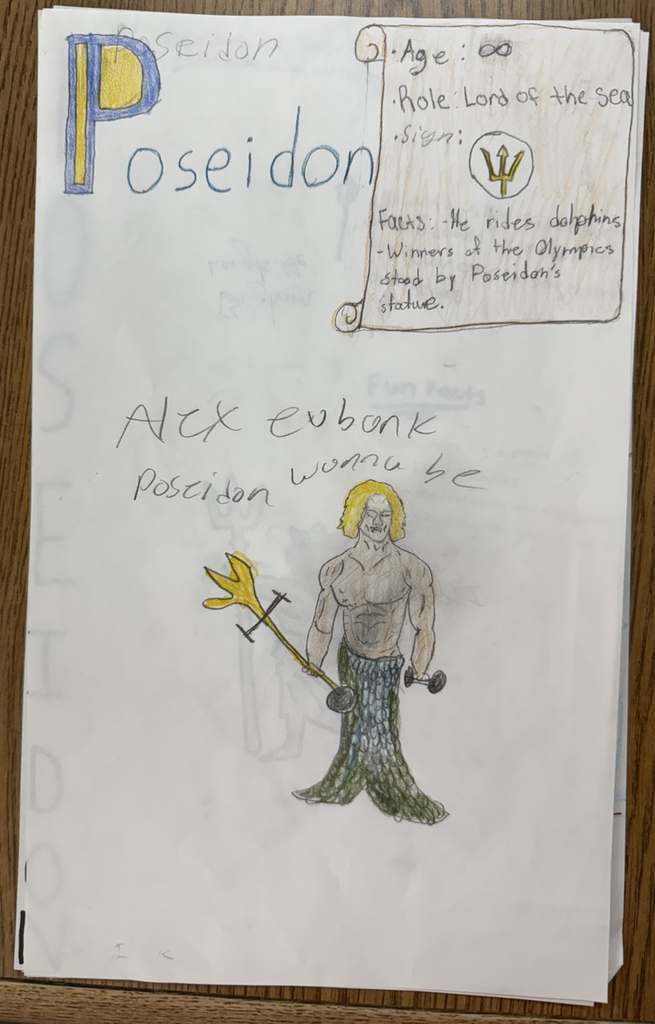 Poseidon
Poseidon
• Age: ∞
• Role: Lord of the Sea
• Sign:
Facts: - He rides dolphins
- Winners of the Olympics
stood by Poseidon's
stature.
Fun Facts
Alex eubank
Poseidon wanna be
P
O
S
E
I
D
O
N
I K